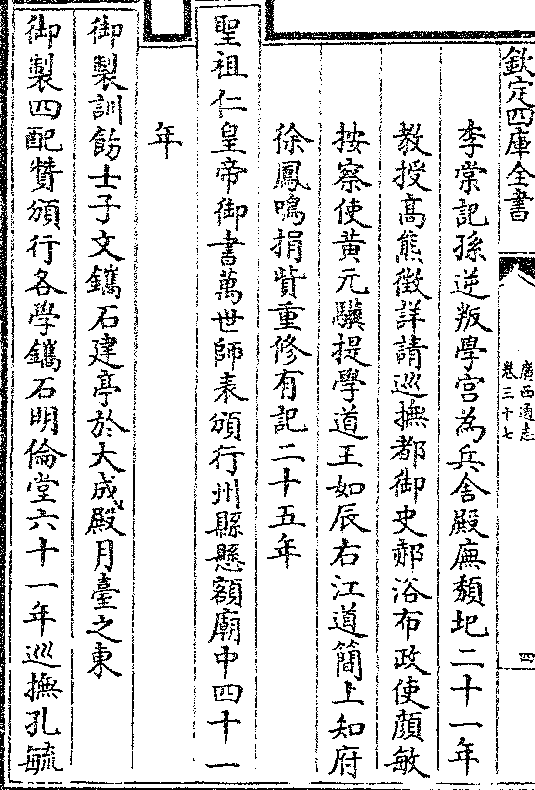 欽定四庫全書
廣西通志
卷三十七
四
李棠記孫逆叛學宫為兵舍殿廡頽圮二十一年
教授高熊徵詳請巡撫都御史郝浴布政使顔敏
按察使黄元驥提學道王如辰右江道簡上知府
徐鳳鳴捐貲重修有記二十五年
聖祖仁皇帝御書萬世師表頒行州縣懸額廟中四十一
年
御製訓飭士子文鐫石建亭於大成殿月臺之東
御製四配贊頒行各學鐫石明倫堂六十一年巡撫孔毓